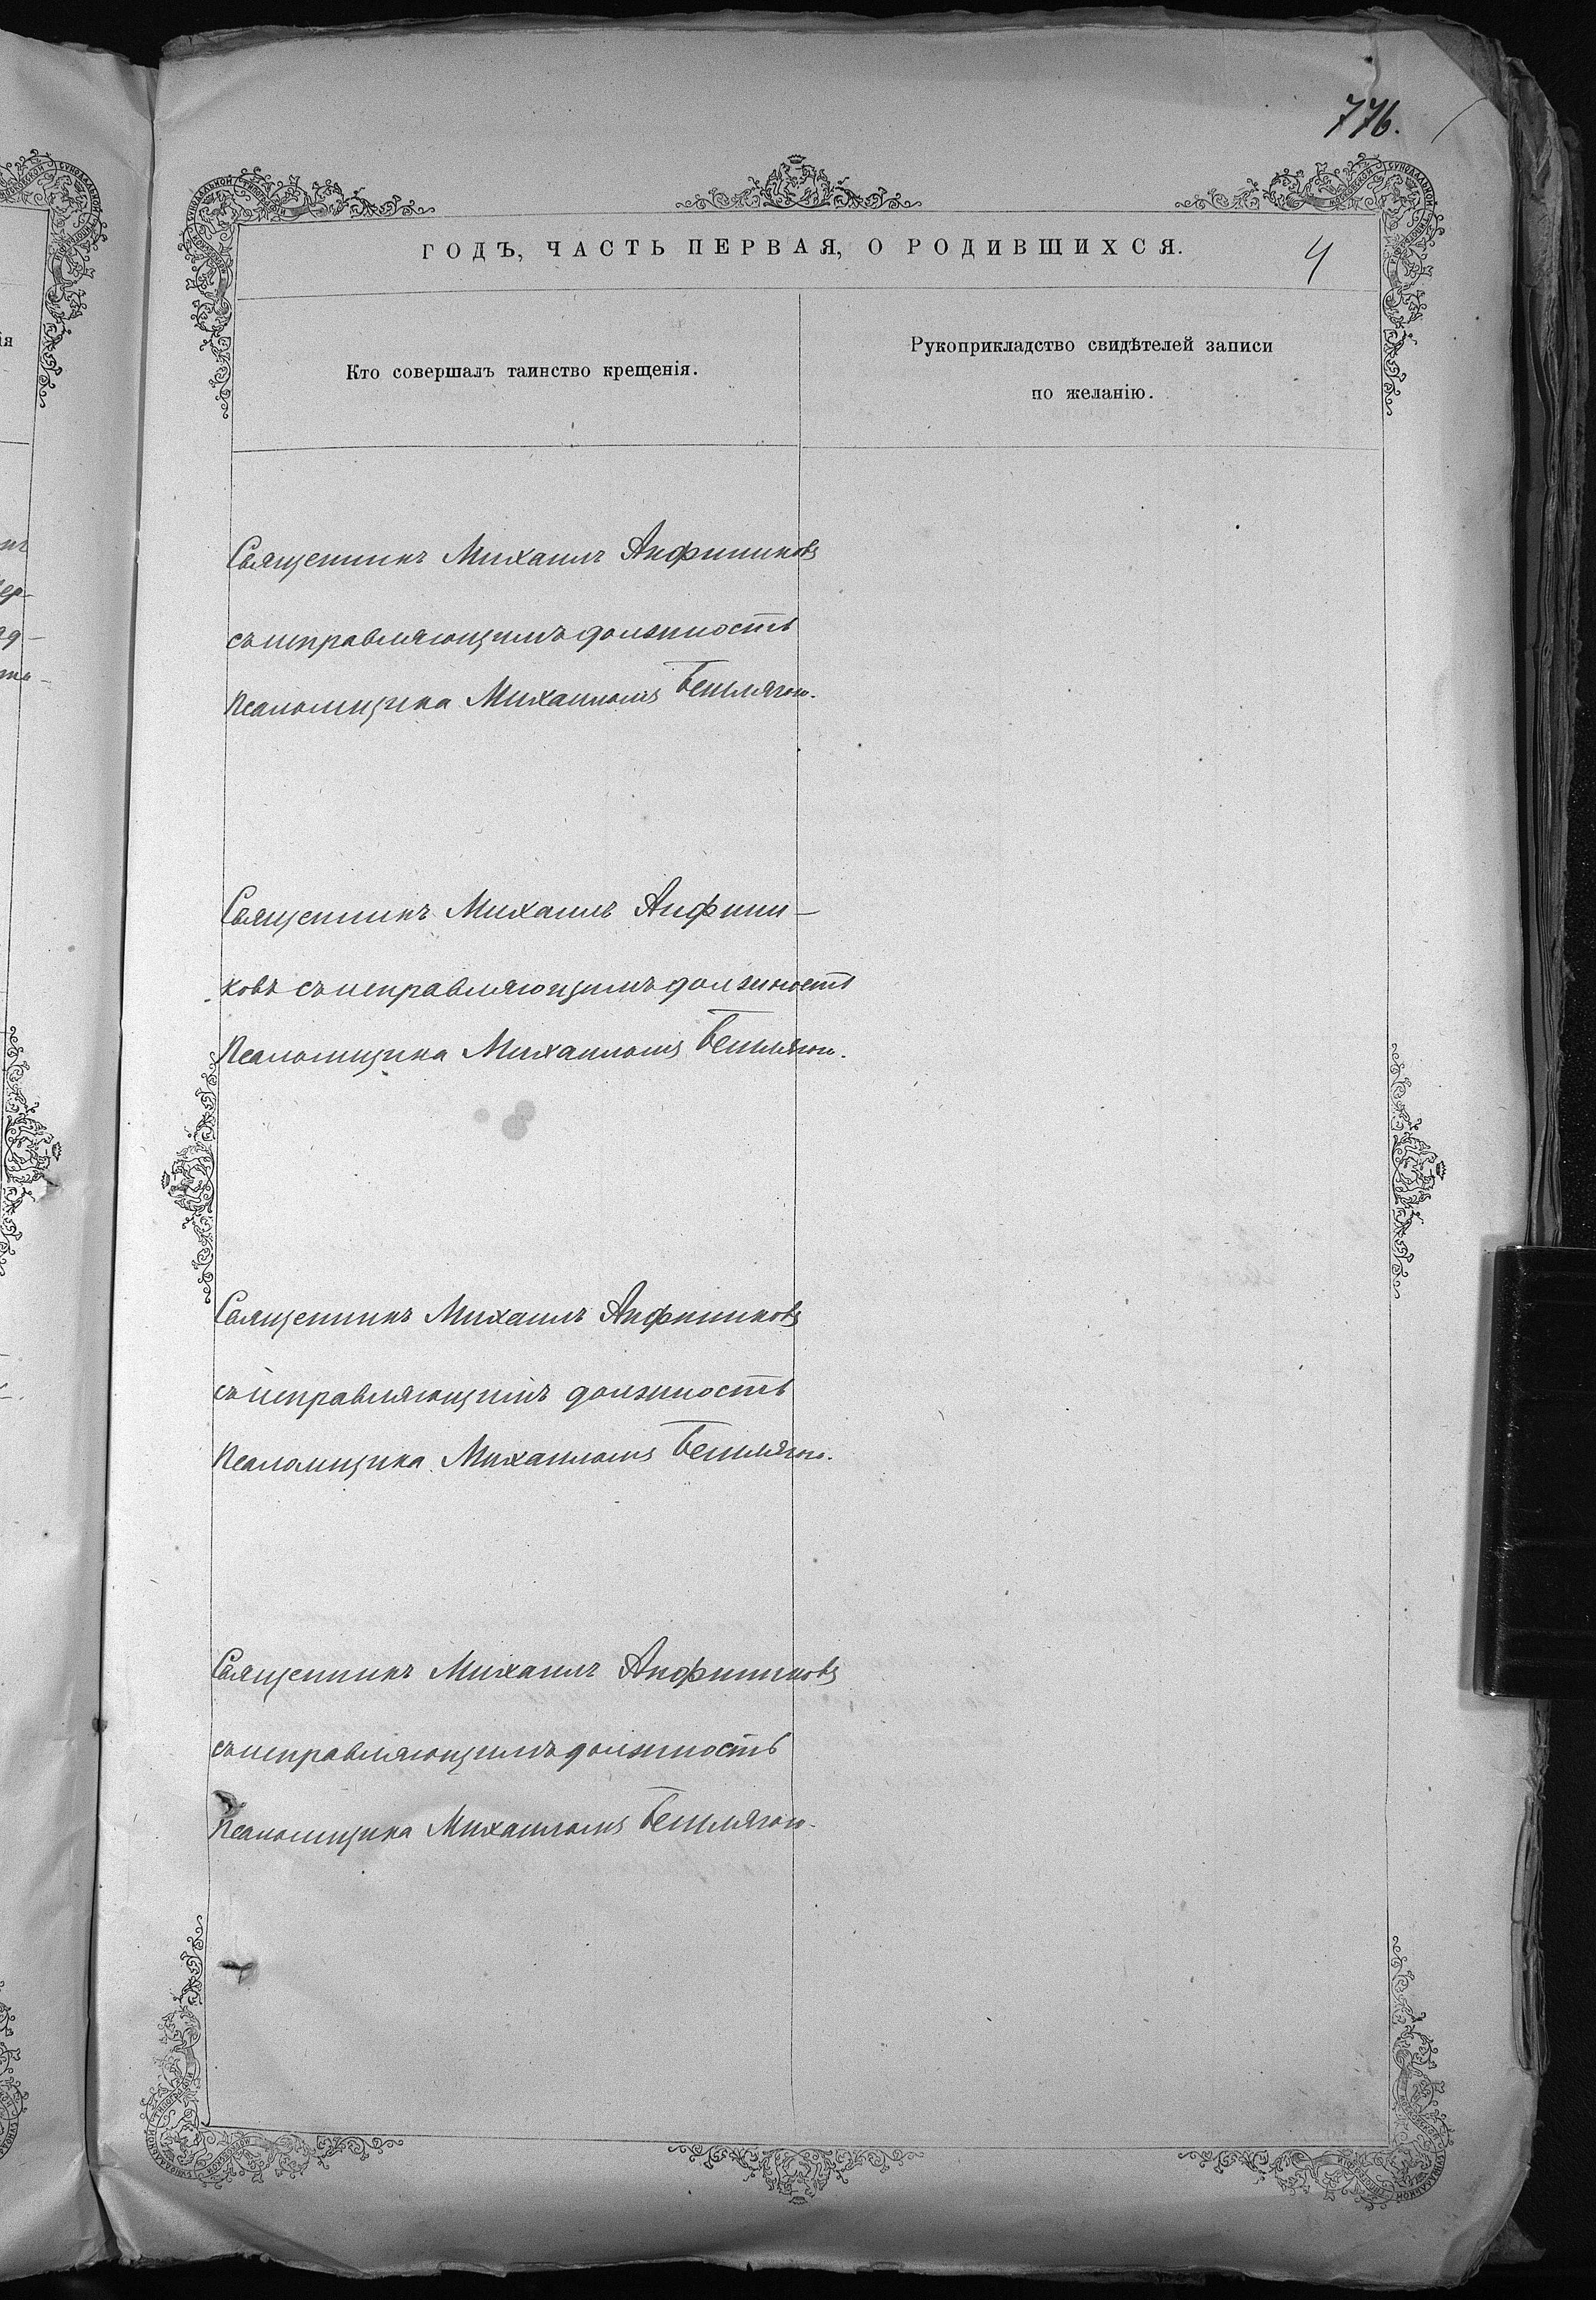 776.
ГОДЪ, ЧАСТЬ ПЕРВАЯ, О РОДИВШИХСЯ.
4
Кто совершалъ таинство крещенія.
Рукоприкладство свидѣтелей записи
по желанію.
Священникъ Михаилъ Анфиниковъ
съ исправляющимъ должность
псаломщика Михаиломъ
Священникъ Михаилъ Анфини-
ковъ съ исправляющимъ должность
псаломщика Михаиломъ
Священникъ Михаилъ Анфиниковъ
съ исправляющимъ должность
псаломщика Михаиломъ
Священникъ Михаилъ Анфиниковъ
съ исправляющимъ должность
псаломщика Михаиломъ